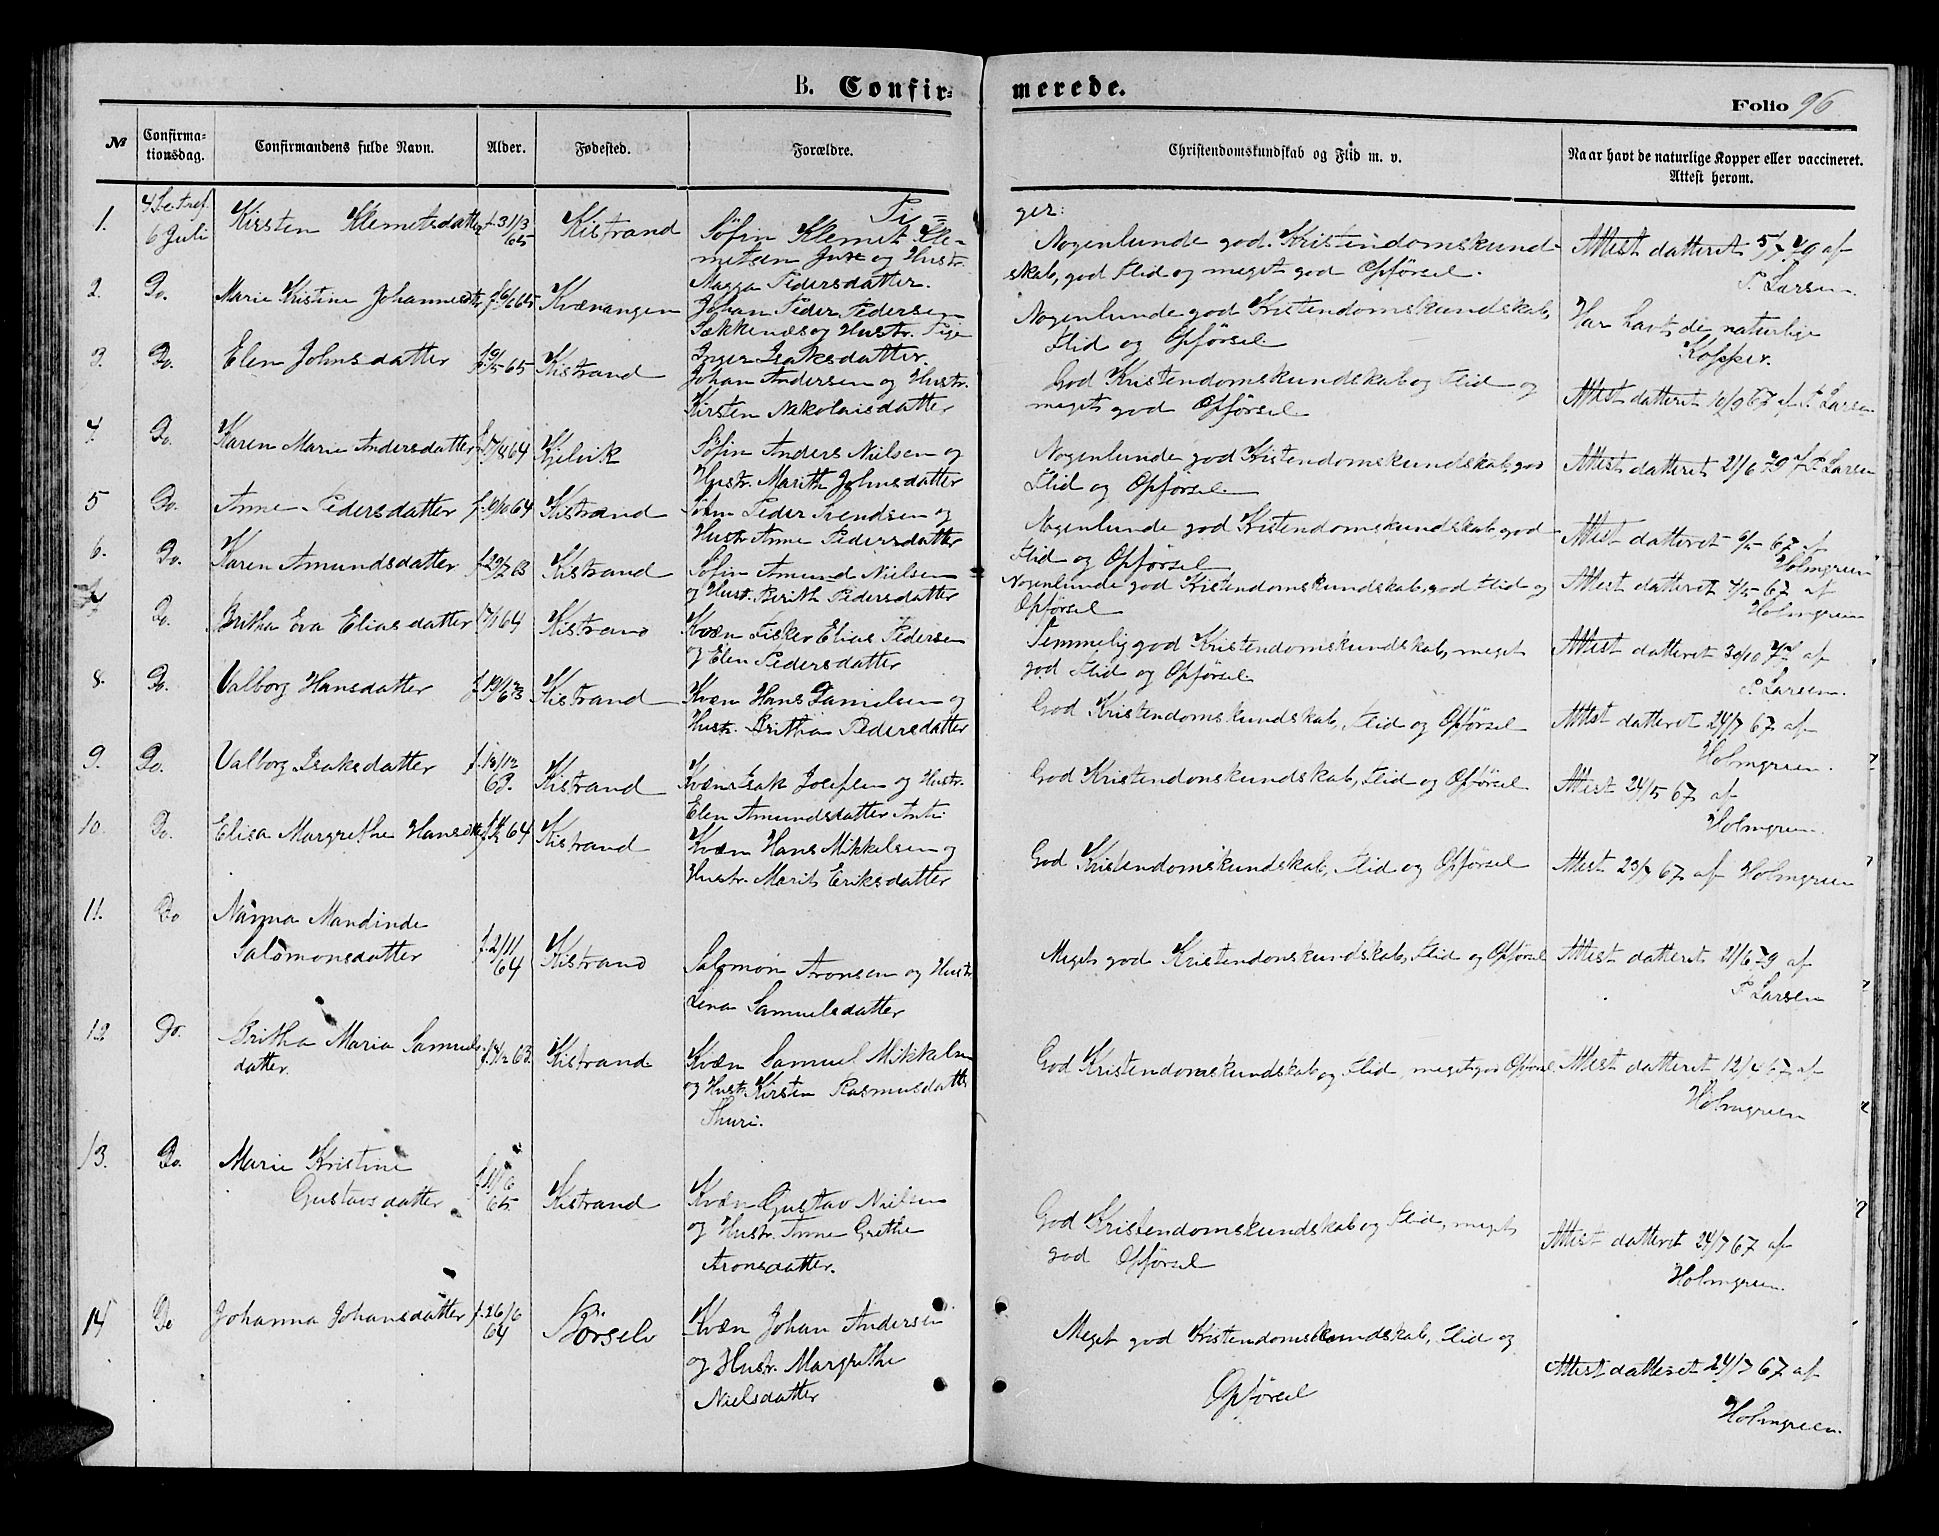 B. Confir-
merede.
Folio 96
№
Confirma-
tionsdag.
Confirmandens fulde Navn.
Alder.
Fødested.
Forældre.
Christendomskundskab og Flid m. v.
Naar havt de naturlige Kopper eller vaccineret.
Attest herom.
Pi=
ger:
1.
6 Juli
Kirsten Klemetsdatter
f. 31/3
65
Kistrand
Søfin Klemet Kle-
metsen og Hustr.
Magga Pedersdatter.
Nogenlunde god Kristendomskund-
skab, god Flid og meget god Opførsel.
Attest datteret af
P. Larsen.
2.
Do.
Marie Kristine Johannesdtr
Kvænangen
Johan Peder Pedersen
og Hustr.
Inger Isaksdatter.
Nogenlunde god Kristendomskundskab,
Flid og Opførsel.
Har havt de naturlige
Kopper.
3.
Do.
Elen Johnsdatter
Kistrand
Johan Andersen og Hustr.
Kirsten Nikolaisdatter
God Kristendomskundskab og Flid og
meget god Opførsel
Attest datteret 10/9 67 af P. Larsen
4.
Do.
Karen Marie Andersdatter
f. 17/8 64
Kjelvik
Søfin Anders Nielsen og
Hustr. Marith Johnsdatter
Nogenlunde god Kristendomskundskab, god
Flid og Opførsel.
Attest datteret 21/6 79 af P. Larsen
5
Do.
Anne Pedersdatter
Kistrand
Søfin Peder Svendsen og
Hustr. Anne Pedersdatter
Nogenlunde god Kristendomskundskab, god
Flid og Opførsel
Attest datteret 67 af
Holmgreen
6.
Do.
Karen Amundsdatter
Kistrand
Søfin Amund Nielsen
og Hustr. Berith Pedersdatter
Nogenlunde god Kristendomskundskab, god Flid og
Opførsel
Attest datteret 7/5 67 af
Holmgreen
7.
Do.
Britha Eva Eliasdatter
Kistrand
Kvæn Fisker Elias Pedersen
og Elen Pedersdatter
Temmelig god Kristendomskundskab, meget
god Flid og Opførsel
Attest datteret 30/10 af
P. Larsen.
8.
Do.
Valborg Hansdatter
Kistrand
Kvæn Hans Danielsen og
Hustr. Britha Pedersdatter
God Kristendomskundskab, Flid og Opførsel
Attest datteret 24/7 67 af
Holmgreen.
9.
Do.
Valborg Isaksdatter
f. 13/12
63.
Kistrand
Kvæn Isak Josefsen og Hustr.
Elen Amundsdatter Anti
God Kristendomskundskab, Flid og Opførsel
Attest 24/5 67 af
Holmgreen.
10.
Do.
Elisa Margrethe Hansdtr
Kistrand
Kvæn Hans Mikkelsen og
Hustr. Marit Eriksdatter
God Kristendomskundskab, Flid og Opførsel
Attest 23/7 67 af Holmgreen
11.
Do
Nanna Mandinde
Salomonsdatter
f. 2/11
64
Kistrand
Salomon Aronsen og Hustr
Lena Samuelsdatter
Meget god Kristendomskundskab, Flid og Opførsel
Attest datteret 21/6 79 af
P. Larsen
12
Do.
Britha Maria Samuels-
datter.
Kistrand
Kvæn Samuel Mikkelsen
og Hustr. Kirsten Rasmusdatter
Thuri.
God Kristendomskundskab og Flid, meget god Opførsel.
Attest datteret 12/4 67 af
Holmgreen
13.
Do.
Marie Kristine
Gustavsdatter
f. 11/6
65.
Kistrand
Kvæn Gustav Nielsen
og Hustr. Anne Grethe
Aronsdatter.
God Kristendomskundskab og Flid, meget
god Opførsel
Attest datteret 24/7 67 af
Holmgreen.
14
Do
Johanna Johansdatter
f. 26/6
64
Børselv
Kvæn Johan Andersen
og Hustr. Margrethe
Nielsdatter
Meget god Kristendomskundskab, Flid og
Opførsel
Attest datteret 24/7 67 af
Holmgreen.